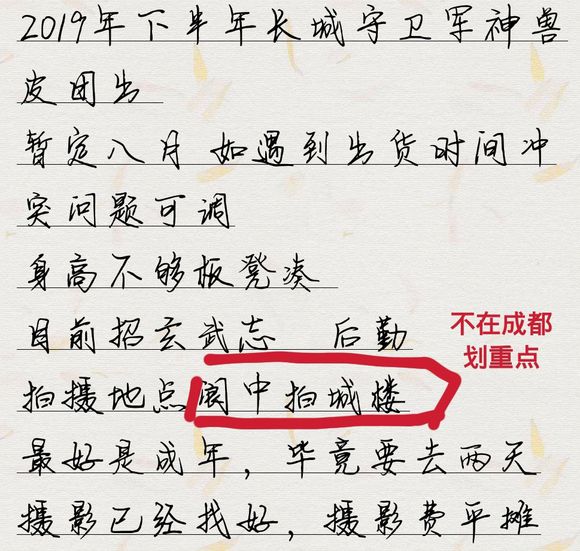 2019年下半年长城守卫军神兽
皮团出
暂定八月 如遇到出货时间冲
突问题可调
身高不够板凳凑
目前招玄武志 后勤
不在成都
划重点
拍摄地点阆中拍城楼
最好是成年，毕竟要去两天
摄影已经找好，摄影费平摊